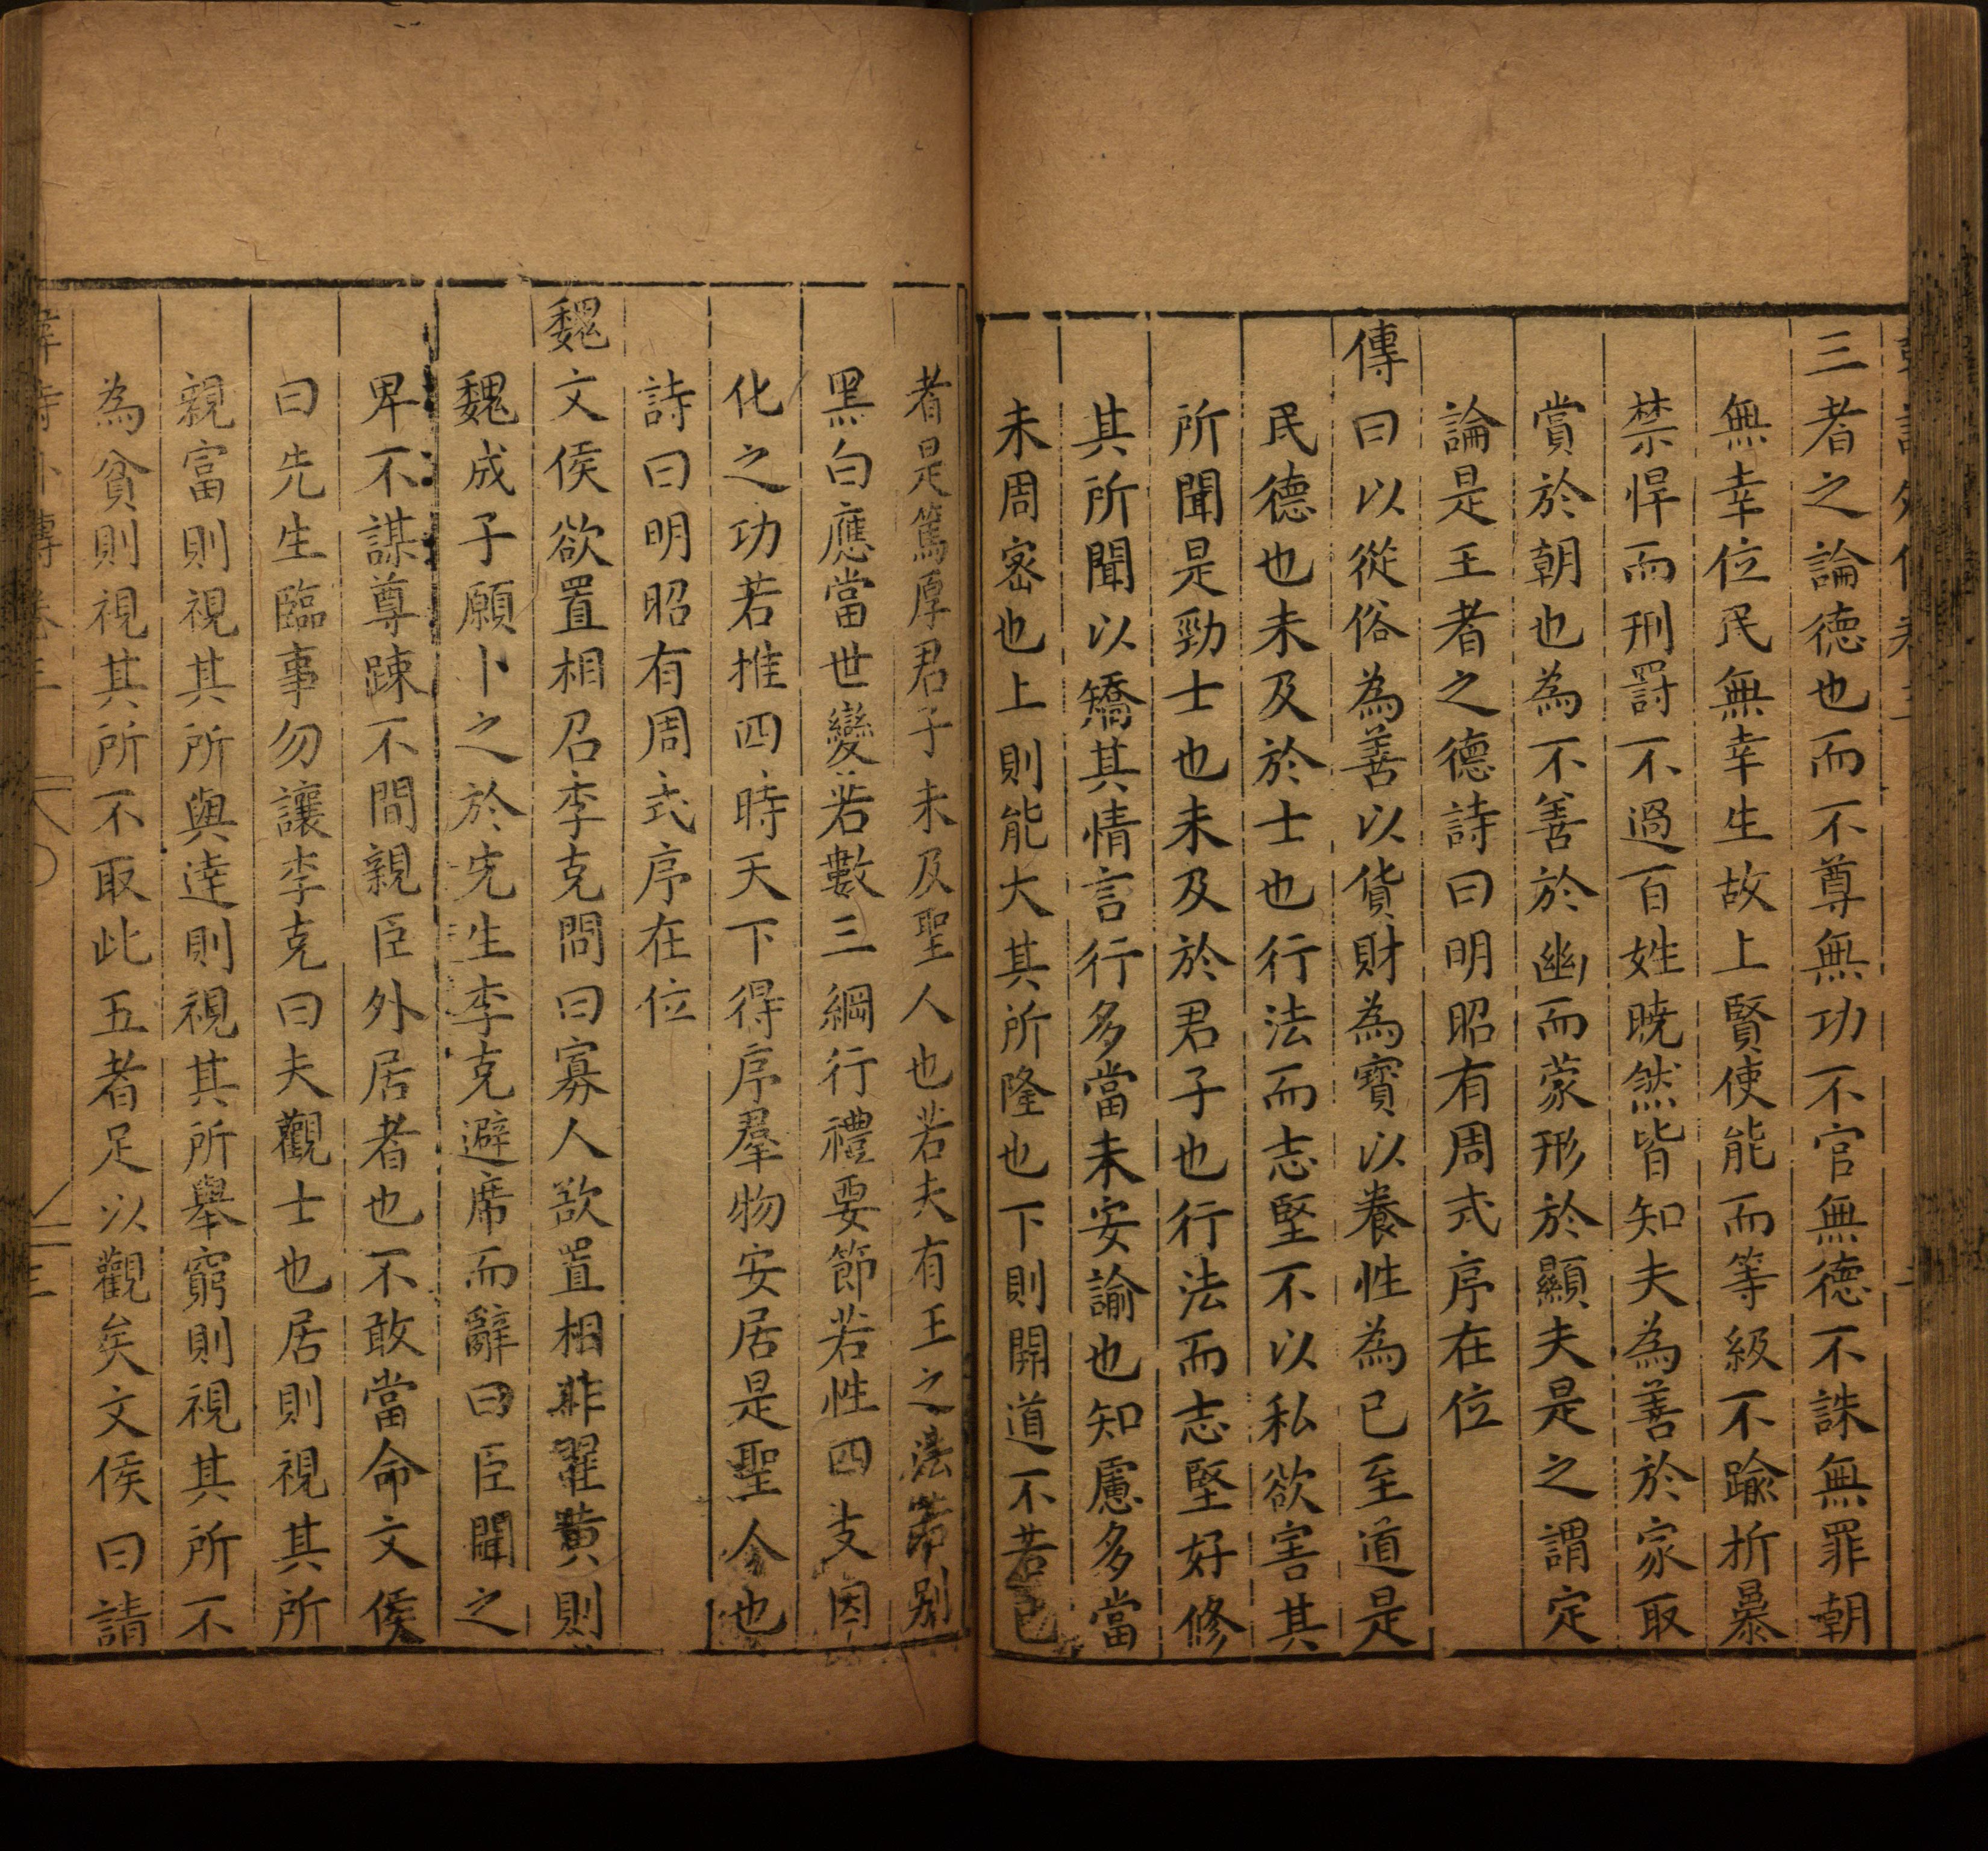 三者之論德也而不尊無功不官無德不誅無罪朝
無幸位民無幸生故上賢使能而等級不踰折暴
禁悍而刑罰不過百姓曉然皆知夫為善於家取
賞於朝也為不善於幽而蒙形於顯夫是之謂定
論是王者之德詩曰明昭有周式序在位
傳曰以從俗為善以貨財為寶以養性為已至道是
民德也未及於士也行法而志堅不以私欲害其
所聞是勁士也未及於君子也行法而志堅好修
其所聞以矯其情言行多當未安諭也知慮多當
未周密也上則能大其所隆也下則開道不若已
者是篤厚君子未及聖人也若夫有王之法若別
黑白應當世變若數三綱行禮要節若性四支因
化之功若推四時天下得序羣物安居是聖人也
詩曰明昭有周式序在位
魏文侯欲置相召李克問曰寡人欲置相非翟黄則
魏成子願卜之於先生李克避席而辭曰臣聞之
卑不謀尊踈不間親臣外居者也不敢當命文侯
曰先生臨事勿讓李克曰夫觀士也居則視其所
親富則視其所與達則視其所舉窮則視其所不
為貧則視其所不取此五者足以觀矣文侯曰請